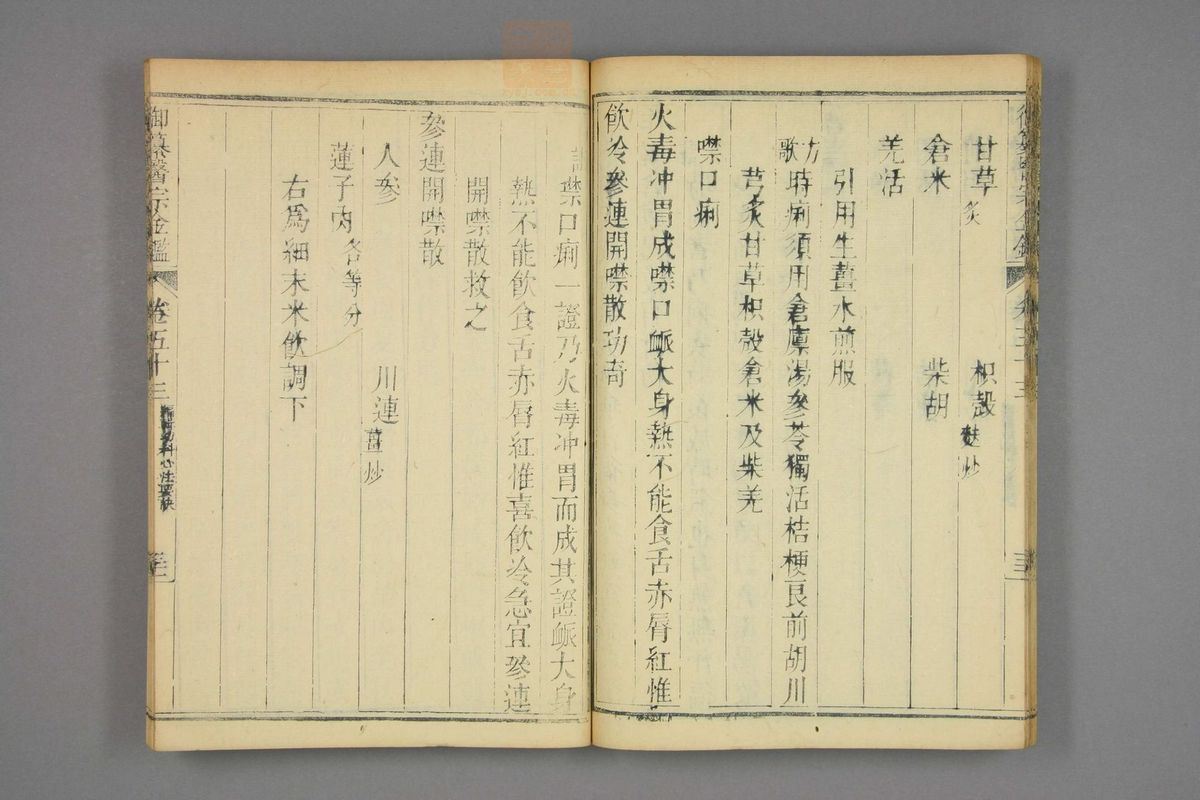 甘草炙 枳殼麩炒
倉米 柴胡
羌活
引用生薑水煎服
方歌 時痢須用倉廩湯參苓獨活桔梗良前胡川
芎炙甘草枳殼倉米及柴羌
噤口痢
火毒冲胃成噤口脈大身熱不能食舌赤脣紅惟
飲冷參連開噤散功奇
註 噤口痢一證乃火毒冲胃而成其證脈大身
熱不能飲食舌赤脣紅惟喜飲冷急宜參連
開噤散救之
參連開噤散
人參 川連薑炒
蓮子肉各等分
右為細末米飲調下
御纂醫宗金鑑 卷五十三 編輯幼科心法要訣